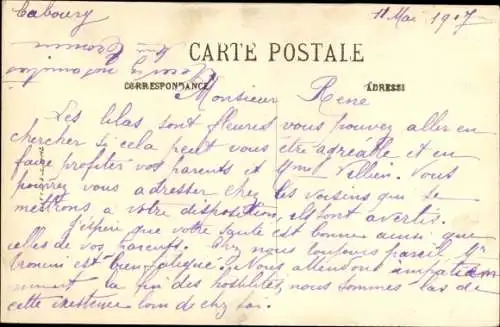 Cabourg 11 Mai 1917
CARTE POSTALE
CORRESPONDANCE ADRESSE
Monsieur René
Les lilas sont fleures vous pouvez aller en
chercher si cela peut vous être agréable et en
faire profiter vos parents et Mme Vilien. Vous
pourrez vous adresser chez les voisins qui se
mettrons a votre disposition, ils sont avertis.
J'espère que votre santé est bonne ainsi que
celles de vos parents. Chez nous toujours pareil, Mr
est bien fatigué. Nous attendons impatiem
ment la fin des hostilités, nous sommes las de
cette existence loin de chez soi.